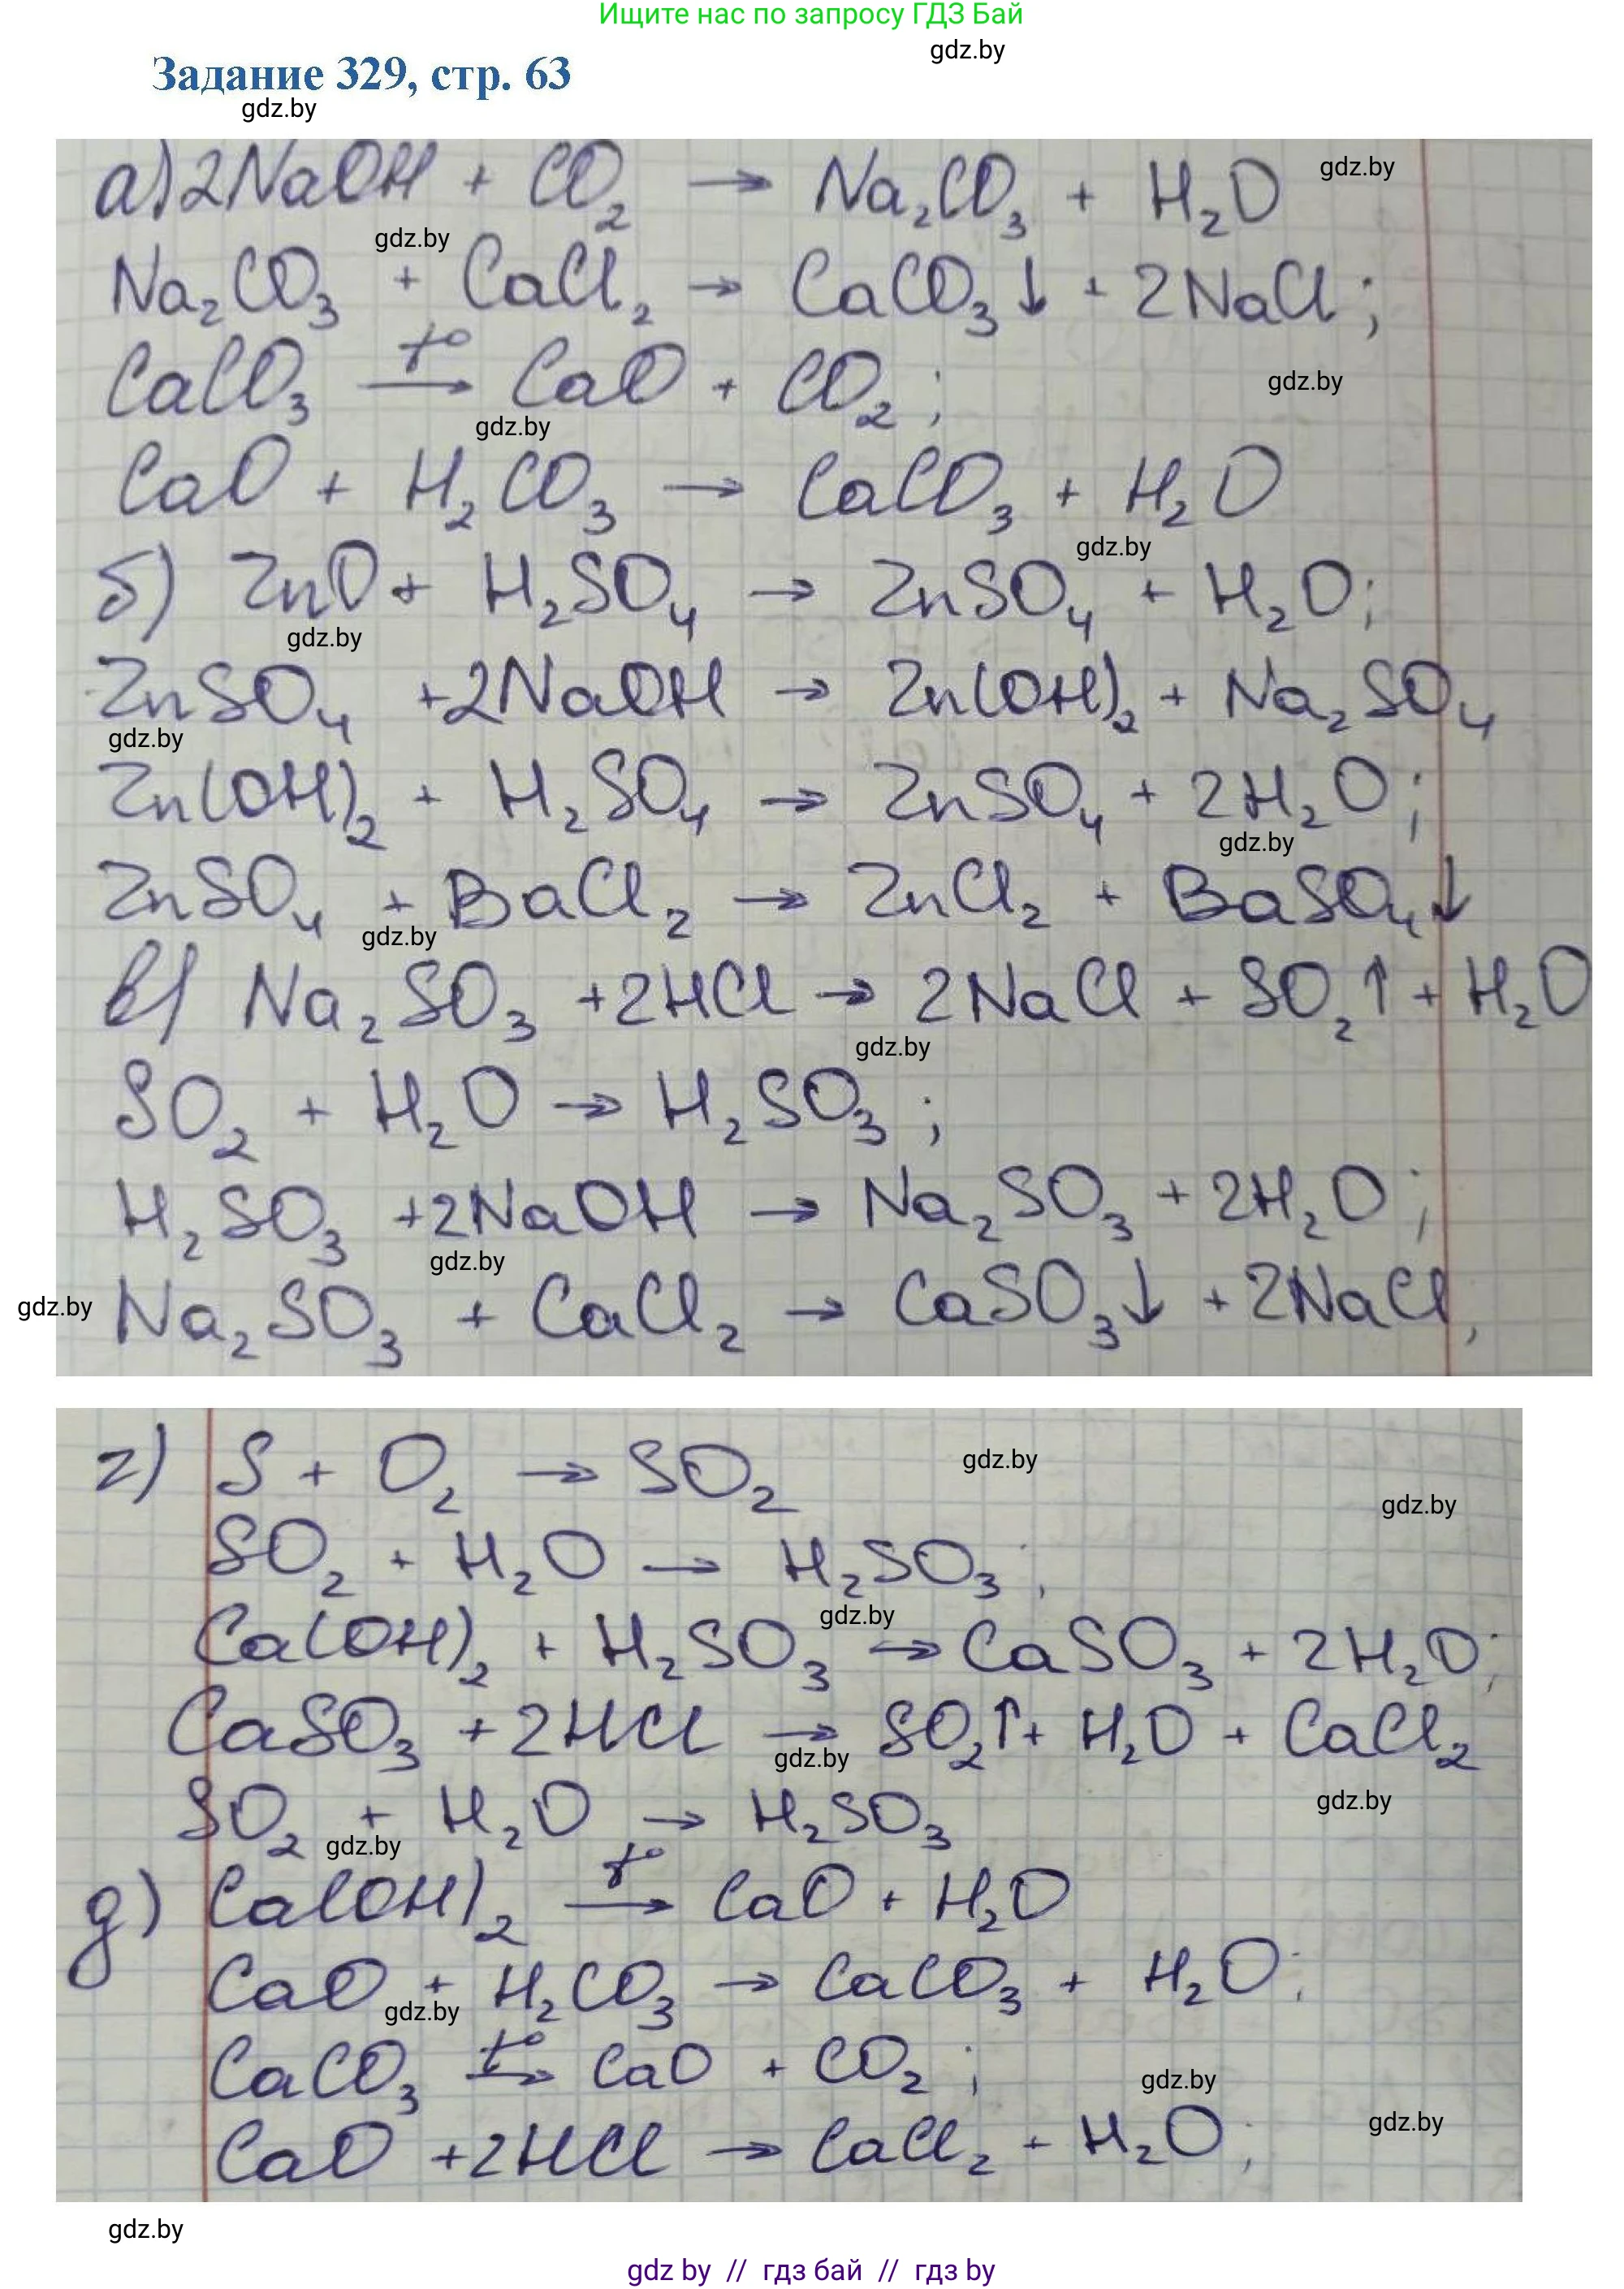 Ищите нас по запросу ГДЗ Бай
gdz.by
Задание 329, стр. 63
gdz.by
а) 2NaOH + CO₂ → Na₂CO₃ + H₂O gdz.by
gdz.by
Na₂CO₃ + CaCl₂ → CaCO₃↓ + 2NaCl;
CaCO₃ t°→ CaO + CO₂; gdz.by
gdz.by
CaO + H₂CO₃ → CaCO₃ + H₂O
gdz.by
б) ZnO + H₂SO₄ → ZnSO₄ + H₂O;
gdz.by
ZnSO₄ + 2NaOH → Zn(OH)₂ + Na₂SO₄
gdz.by
Zn(OH)₂ + H₂SO₄ → ZnSO₄ + 2H₂O;
gdz.by
ZnSO₄ + BaCl₂ → ZnCl₂ + BaSO₄↓
gdz.by
в) Na₂SO₃ + 2HCl → 2NaCl + SO₂↑ + H₂O
gdz.by
SO₂ + H₂O → H₂SO₃;
H₂SO₃ + 2NaOH → Na₂SO₃ + 2H₂O;
gdz.by
gdz.by
Na₂SO₃ + CaCl₂ → CaSO₃↓ + 2NaCl,
г) S + O₂ → SO₂ gdz.by
gdz.by
SO₂ + H₂O → H₂SO₃;
gdz.by
Ca(OH)₂ + H₂SO₃ → CaSO₃ + 2H₂O;
CaSO₃ + 2HCl → SO₂↑ + H₂O + CaCl₂
gdz.by
gdz.by
SO₂ + H₂O → H₂SO₃
gdz.by
д) Ca(OH)₂ t°→ CaO + H₂O
CaO + H₂CO₃ → CaCO₃ + H₂O;
gdz.by
CaCO₃ t°→ CaO + CO₂;
gdz.by
gdz.by
CaO + 2HCl → CaCl₂ + H₂O;
gdz.by
gdz by // гдз бай // гдз by